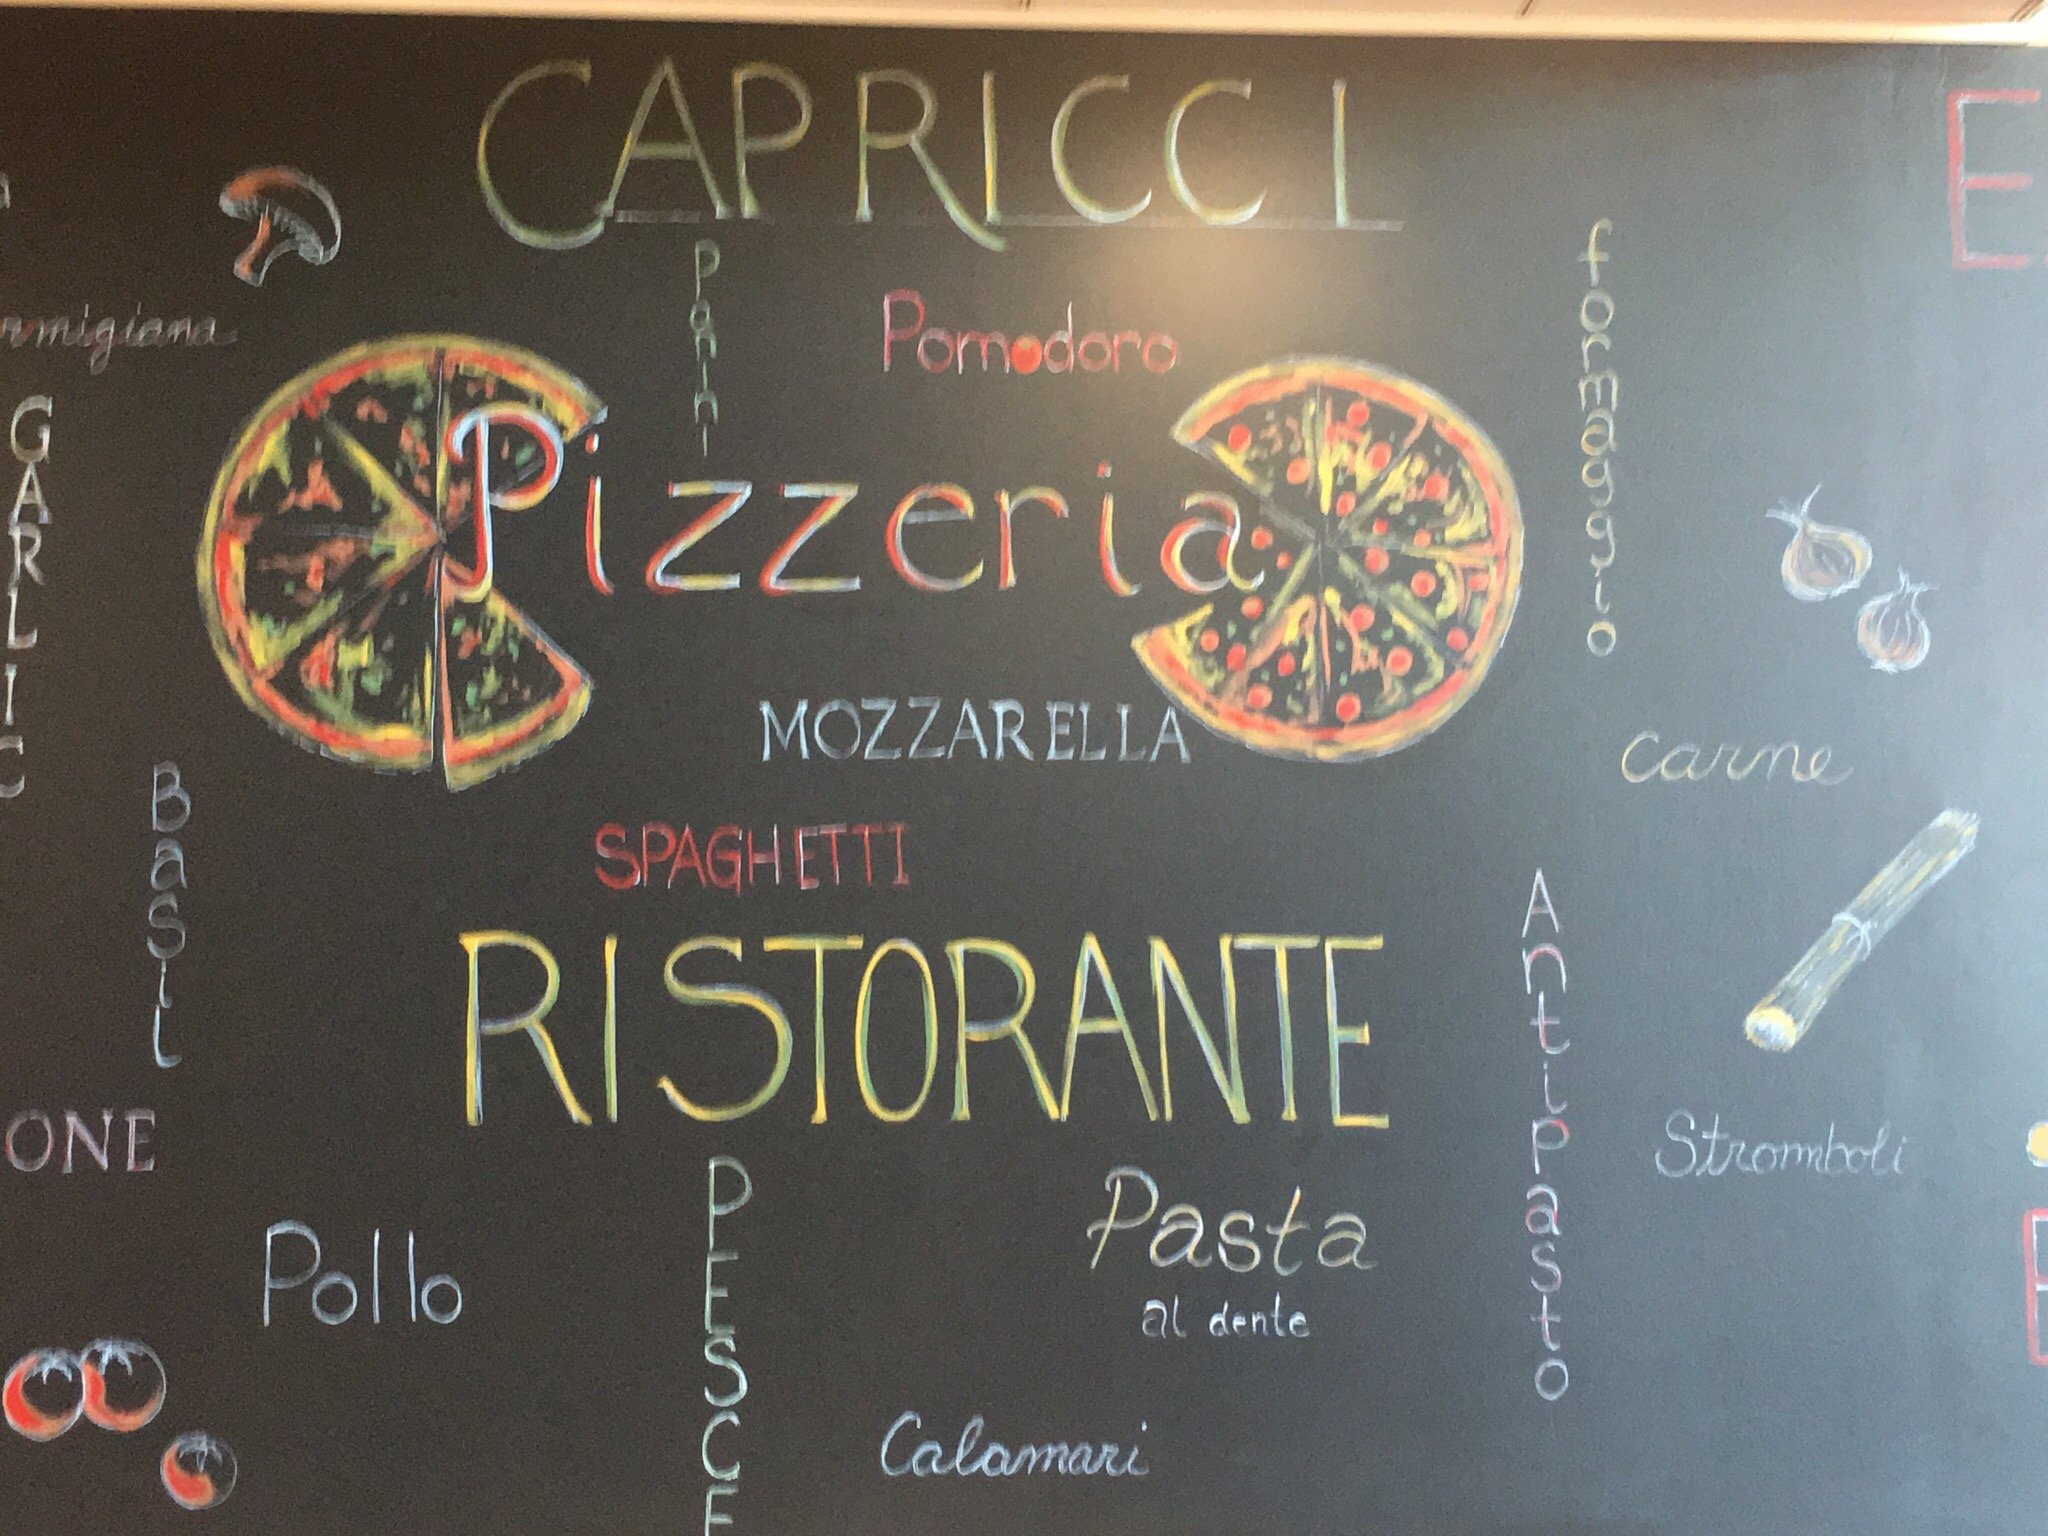 CAPRICCI
E
Panini
Pomodoro
formaggio
rmigiana
GARLIC
Pizzeria
MOZZARELLA
carne
Basil
SPAGHETTI
RISTORANTE
Antipasto
ONE
Stromboli
PESCE
Pasta
al dente
Pollo
Calamari